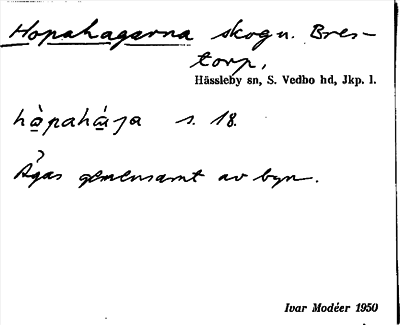 Hopahagarna skog u. Bres-
torp,
Hässleby sn, S. Vedbo hd, Jkp. l.
hàpahá̱ga s. 18.
Ägas gemensamt av byn.
Ivar Modéer 1950